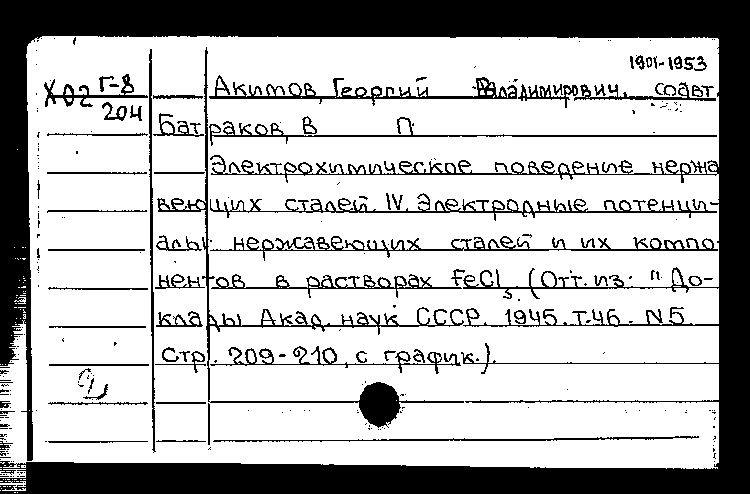 1901-1953
Х02 Г-8 Акимов, Георгий Владимирович. соавт.
204
Батраков, В П
Электрохимическое поведение нержа
веющих сталей. IV. Электродные потенци-
алы нержавеющих сталей и их компо
нентов в растворах FeCl3 (Отт. из: "До-
клады Акад. наук СССР. 1945. Т.46. N5.
Стр. 209-210, с график.).
2